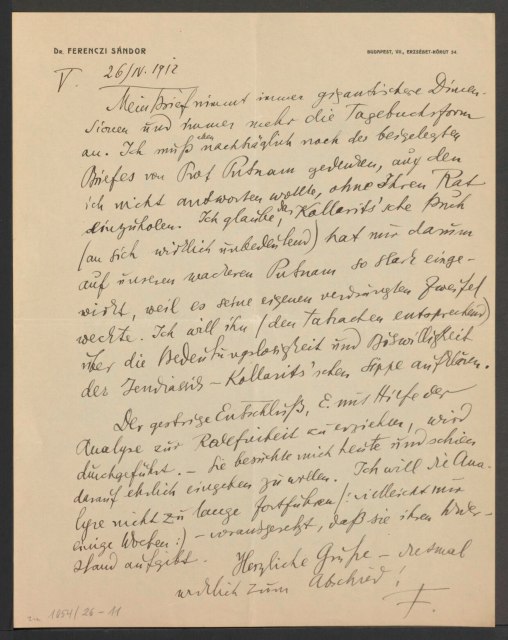 Dr. FERENCZI SÁNDOR
BUDAPEST, VII., ERZSÉBET-KÖRUT 54.
V. 26/IV. 1912
Mein Brief nimmt immer gigantischere Dimen-
sionen und immer mehr die Tagebuchform
an. Ich muß nachträglich noch des beigelegten
Briefes von Prof Putnam gedenken, auf den
ich nicht antworten wollte, ohne Ihren Rat
einzuholen. Ich glaube, das Kollarits'sche Buch
(an sich wirklich unbedeutend) hat nur darum
auf unseren wackeren Putnam so stark einge-
wirkt, weil es seine eigenen verdrängten Zweifel
weckte. Ich will ihn (den Tatsachen entsprechend)
über die Bedeutungslosigkeit und Böswilligkeit
der Jendrassik-Kollarits'schen Sippe aufklären.
Der gestrige Entschluß, E. mit Hilfe der
Analyse zur zu erziehen, wird
durchgeführt. – Sie besuchte mich heute und schien
darauf ehrlich eingehen zu wollen. Ich will die Ana-
lyse nicht zu lange fortführen /: vielleicht nur
einige Wochen :/ – vorausgesetzt, daß sie ihren Wider-
stand aufgibt. Herzliche Grüße – diesmal
wirklich zum Abschied!
F.
1054/26-11